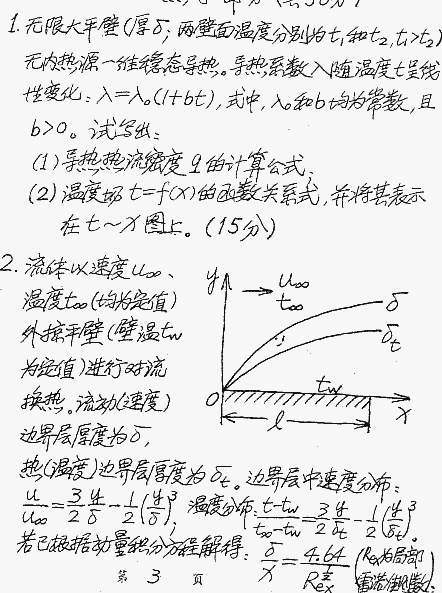 1. 无限大平壁(厚δ, 两壁面温度分别为t₁和t₂, t₁>t₂)
无内热源一维稳态导热。导热系数λ随温度t呈线
性变化: λ=λ₀(1+bt), 式中, λ₀和b均为常数, 且
b>0。试写出:
(1) 导热热流密度q的计算公式.
(2) 温度场t=f(x)的函数关系式, 并将其表示
在t~x图上。(15分)
2. 流体以速度u∞、
温度t∞(均为定值)
外掠平壁(壁温tw
为定值)进行对流
换热。流动(速度)
边界层厚度为δ,
y
u∞
t∞
δ
δt
tw
O
x
l
热(温度)边界层厚度为δt。边界层中速度分布:
u/u∞=3/2 y/δ-1/2(y/δ)³, 温度分布: t-tw/t∞-tw=3/2 y/δt-1/2(y/δt)³。
若已根据动量积分方程解得: δ/x=4.64/Rex^½ (Rex为局部
雷诺准则数).
第 3 页